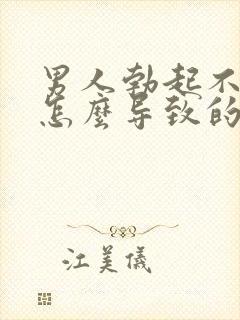 男人勃起不
怎麼导致的
江美儀